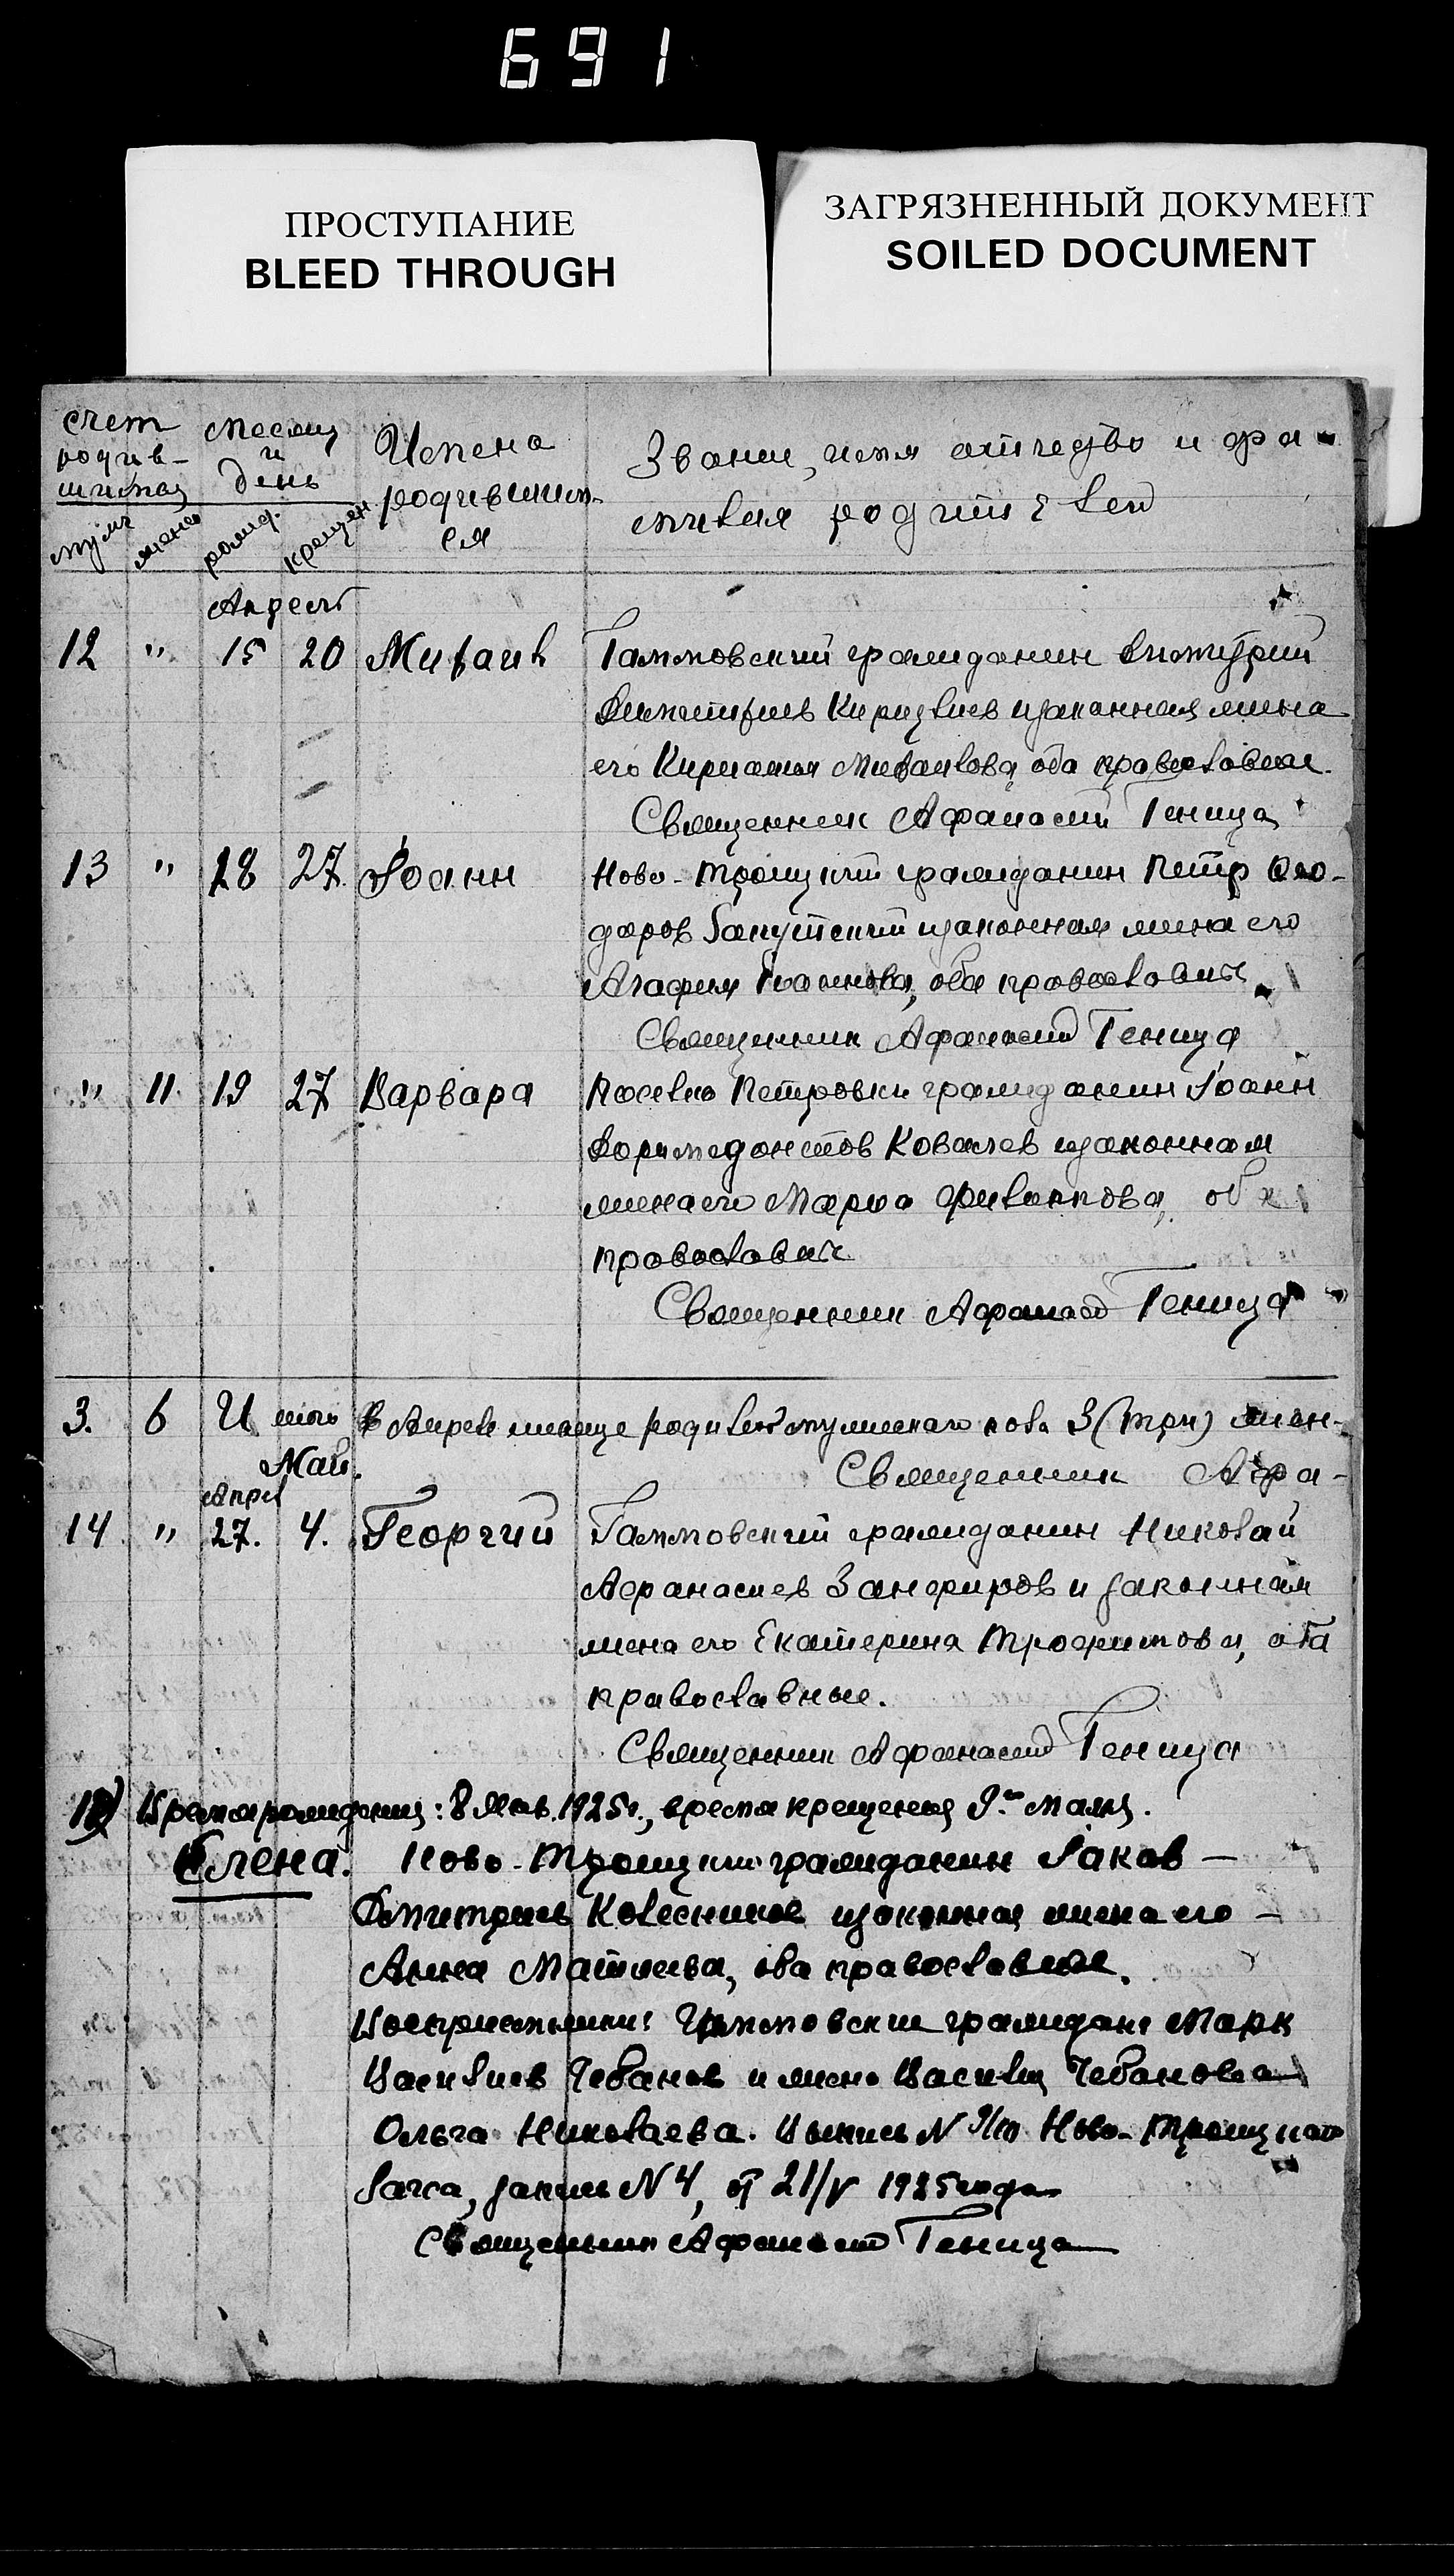 691
ПРОСТУПАНИЕ
BLEED THROUGH
ЗАГРЯЗНЕННЫЙ ДОКУМЕНТ
SOILED DOCUMENT
счет родив- месяц и день Имена родивших- ся
Звание, имя отчество и фа-
милия родителей
муж. женс. рожд. крещен.
Апрель
12 " 15 20 Михаил Гаммовский гражданин Димитрий
Димитриев и законная жена
его Михаилова, оба православные.
Священник Афанасий Геница
13 " 18 27. Іоанн Ново-Троицкий гражданин Петр Фео-
доров и законная жена его
Агафия Иоаннова, оба православные
Священник Афанасий Геница
" 11. 19 27 Варвара Поселка Петровки гражданин Іоанн
Ковалев и законная
жена его Мария Филиппова, оба
православные
Священник Афанасий Геница
3. 6 Итого в Апреле месяце родилось мужеского пола 3 (три) жен-
Май. Священник Афа-
Апрел
14 " 27. 4. Георгий Гаммовский гражданин Николай
Афанасиев Занфиров и законная
жена его Екатерина Трофимова, оба
православные.
Священник Афанасий Геница
Время рождения: 8 Янв. 1925 г., время крещения 9.го мая.
Елена. Ново-Троицкий гражданин Іаков –
Дмитриев Колесников и законная жена его –
Анна Матвеева, оба православные.
Восприемники: Гаммовские граждане Марк
Василиев Чебанов и жена Василия Чебанова
Ольга Николаева. Выпись N Ново-Троицкаго
Загса, запись N 4, от 21/V 1925 года
Священник Афанасий Геница